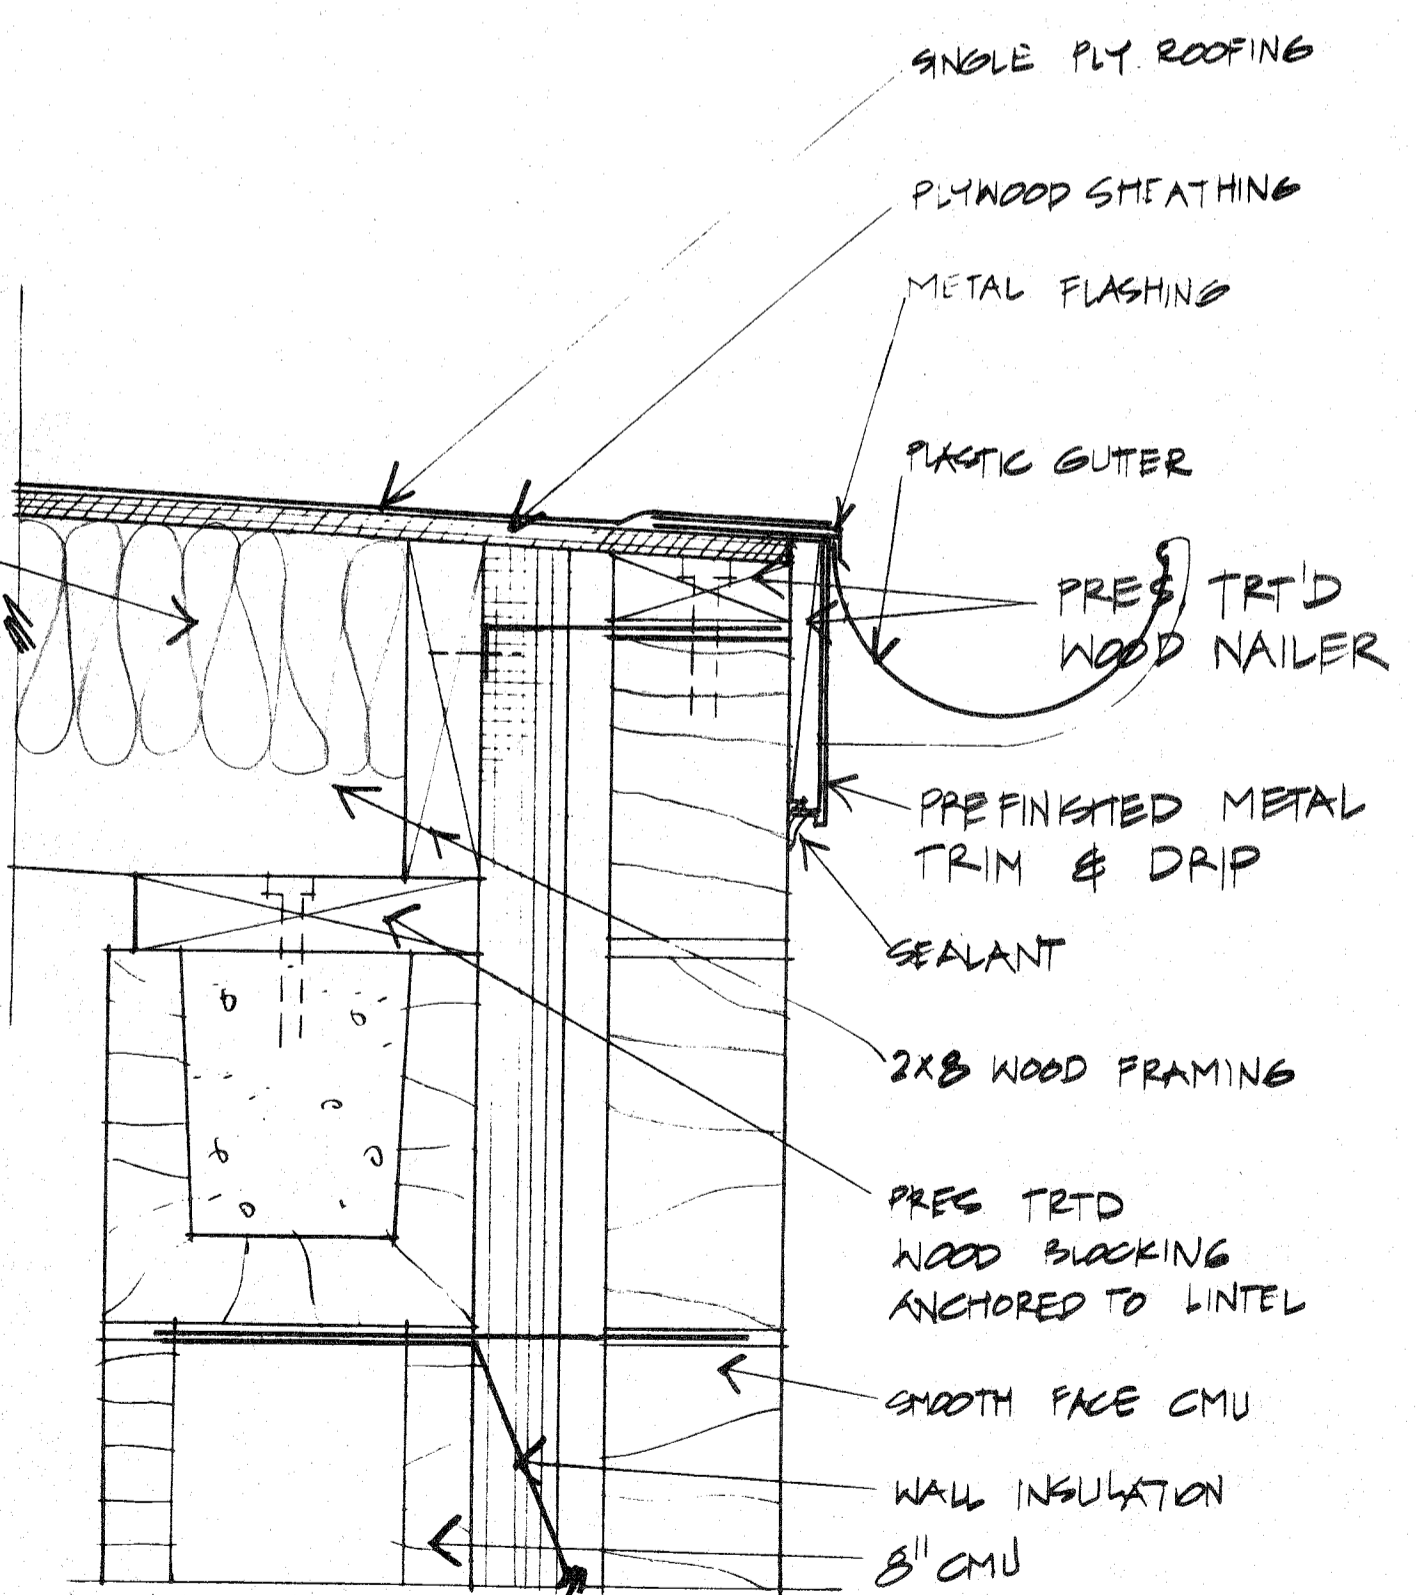 SINGLE PLY ROOFING
PLYWOOD SHEATHING
METAL FLASHING
PLASTIC GUTTER
PRES TRT'D
WOOD NAILER
PREFINISHED METAL
TRIM & DRIP
SEALANT
2X8 WOOD FRAMING
PRES TRTD
WOOD BLOCKING
ANCHORED TO LINTEL
SMOOTH FACE CMU
WALL INSULATION
8" CMU